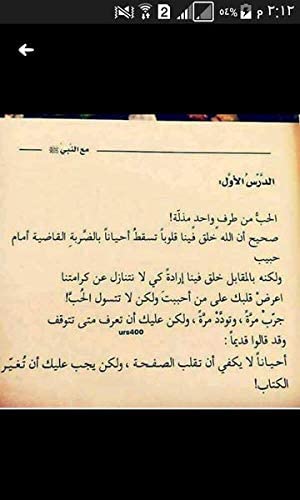 ٣:١٢ م ٥٤% 2
مع النَّبي ﷺ
الدَّرْسُ الأوَّل:
الحبُّ من طرفٍ واحد مذلّة!
صحيح أن الله خلق فينا قلوباً تسقطُ أحياناً بالضّربةِ القاضية أمام
حبيب
ولكنه بالمقابل خلق فينا إرادةً كي لا نتنازل عن كرامتنا
اعرضْ قلبك على من أحببتَ ولكن لا تتسول الحُبَّ!
جرّبْ مرَّةً، وتودَّدْ مرَّةً، ولكن عليك أن تعرف متى تتوقف
urs400
وقد قالوا قديماً:
أحياناً لا يكفي أن تقلب الصفحة، ولكن يجب عليك أن تُغيّر
الكتاب!